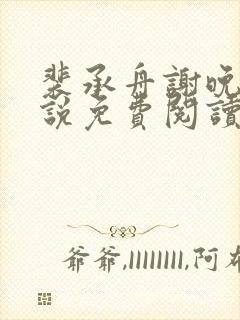 裴承舟謝晚
說免費閱讀
爺爺,llllllll,阿布